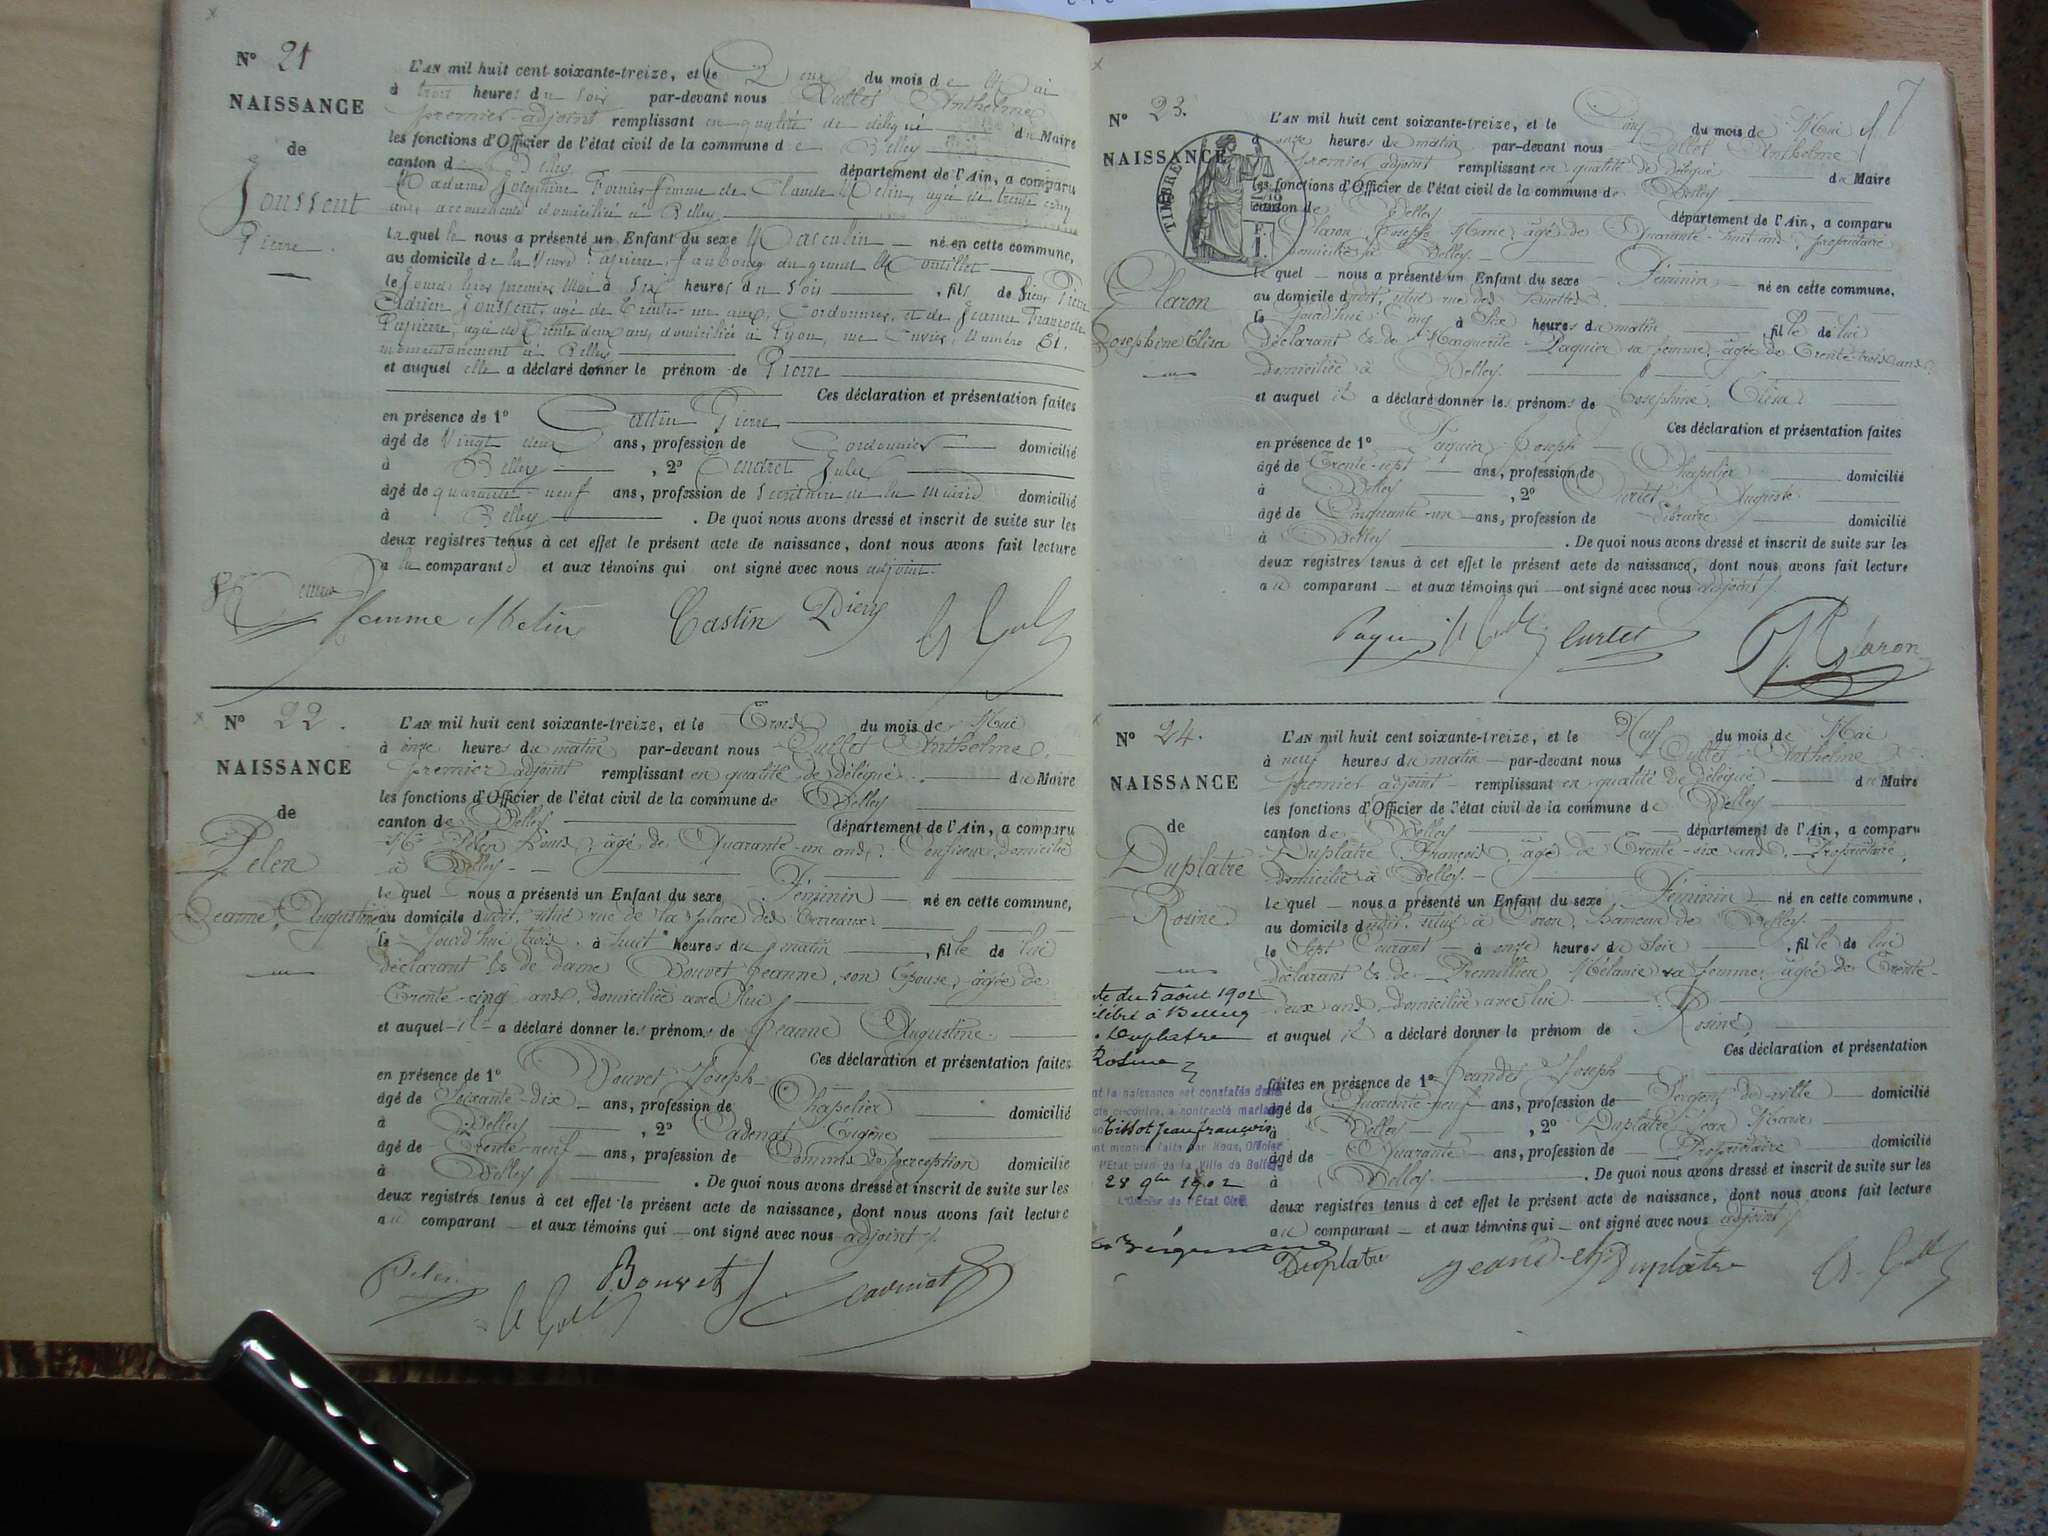 N° 21
NAISSANCE
de
Joussent
Pierre
L'AN mil huit cent soixante-treize, et le Deux du mois de Mai
à trois heures du soir par-devant nous Anthelme
premier adjoint remplissant en qualité de délégué du Maire
les fonctions d'Officier de l'état civil de la commune de Belley
canton de Belley département de l'Ain, a comparu
Madame Joséphine Fornier femme de Claude Melin, agée de trente cinq
ans, accoucheuse domiciliée à Belley
laquelle nous a présenté un Enfant du sexe Masculin né en cette commune,
au domicile de la Veuve Papierre, faubourg du grand
le jourd. hier premier Mai à six heures du soir, fils de Sieur Pierre
Adrien Joussent, agé de Trente un ans, Cordonnier, et de Jeanne Françoise
Papierre, agée de Trente deux ans, domiciliés à Lyon, rue Cuvier, Numéro 81,
momentanement à Belley
et auquel elle a déclaré donner le prénom de Pierre
Ces déclaration et présentation faites
en présence de 1° Castin Pierre
âgé de Vingt deux ans, profession de Cordonnier domicilié
à Belley, 2° Jules
âgé de quarante-neuf ans, profession de Secrétaire de la mairie domicilié
à Belley. De quoi nous avons dressé et inscrit de suite sur les
deux registres tenus à cet effet le présent acte de naissance, dont nous avons fait lecture
a la comparante et aux témoins qui ont signé avec nous adjoint.
femme Melin Castin Pierre
N° 22.
NAISSANCE
de
Pelen
Jeanne, Augustine
L'AN mil huit cent soixante-treize, et le Trois du mois de Mai
à onze heures du matin par-devant nous Anthelme
premier adjoint remplissant en qualité de délégué du Maire
les fonctions d'Officier de l'état civil de la commune de Belley
canton de Belley département de l'Ain, a comparu
Mr Pelen Louis, âgé de Quarante-un ans, Confiseur, domicilié
à Belley
lequel nous a présenté un Enfant du sexe Féminin né en cette commune,
au domicile dudit, situé rue de la place des Terreaux
le jourd'hui trois, à huit heures du matin, fille de lui
déclarant & de dame Bouvet Jeanne, son épouse, âgée de
Trente-cinq ans, domiciliée avec lui
et auquel il a déclaré donner les prénoms de Jeanne Augustine
Ces déclaration et présentation faites
en présence de 1° Bouvet Joseph
âgé de Soixante-dix ans, profession de Chapelier domicilié
à Belley, 2° Cadenat Eugène
âgé de Trente-neuf ans, profession de Commis de perception domicilié
à Belley. De quoi nous avons dressé et inscrit de suite sur les
deux registres tenus à cet effet le présent acte de naissance, dont nous avons fait lecture
au comparant et aux témoins qui ont signé avec nous adjoint.
Pelen Bouvet J Cadenat
7
N° 23.
NAISSANCE
TIMBRE
Claron
Josephine Elisa
L'AN mil huit cent soixante-treize, et le Cinq du mois de Mai
à onze heures du matin par-devant nous Anthelme
premier adjoint remplissant en qualité de délégué du Maire
les fonctions d'Officier de l'état civil de la commune de Belley
canton de Belley département de l'Ain, a comparu
Claron Joseph Marie, âgé de Quarante-huit ans, propriétaire
domicilié à Belley
lequel nous a présenté un Enfant du sexe Féminin né en cette commune,
au domicile dudit, situé rue des
le jourd'hui Cinq à Six heures du matin, fille de lui
déclarant & de Marguerite Paquier sa femme, âgée de Trente-trois ans,
domiciliée à Belley
et auquel il a déclaré donner les prénoms de Josephine, Elisa
Ces déclaration et présentation faites
en présence de 1° Joseph
âgé de Trente-sept ans, profession de Chapelier domicilié
à Belley, 2° Curtet Auguste
âgé de Cinquante-un ans, profession de Libraire domicilié
à Belley. De quoi nous avons dressé et inscrit de suite sur les
deux registres tenus à cet effet le présent acte de naissance, dont nous avons fait lecture
au comparant et aux témoins qui ont signé avec nous adjoint
Curtet Claron
N° 24.
NAISSANCE
de
Duplatre
Rosine
L'AN mil huit cent soixante-treize, et le Neuf du mois de Mai
à neuf heures du matin par-devant nous Anthelme
premier adjoint remplissant en qualité de délégué du Maire
les fonctions d'Officier de l'état civil de la commune de Belley
canton de Belley département de l'Ain, a comparu
Duplatre François, âgé de Trente-six ans, Propriétaire,
domicilié à Belley
lequel nous a présenté un Enfant du sexe Féminin né en cette commune,
au domicile dudit, situé à Coron, hameau de Belley
le Sept Courant à onze heures du soir, fille de lui
déclarant & de Premillieu Mélanie sa femme, âgée de Trente-
deux ans, domiciliée avec lui
et auquel il a déclaré donner le prénom de Rosine
Ces déclaration et présentation
faites en présence de 1° Jeandet Joseph
âgé de Quarante-neuf ans, profession de Sergent de ville domicilié
à Belley, 2° Duplatre Jean Marie
âgé de Quarante ans, profession de Propriétaire domicilié
à Belley. De quoi nous avons dressé et inscrit de suite sur les
deux registres tenus à cet effet le présent acte de naissance, dont nous avons fait lecture
au comparant et aux témoins qui ont signé avec nous adjoint
Duplatre Jeandet Duplatre
du 5 août 1902
à Belley
Duplatre
Rosine
la naissance est constatée dans
a contracté mariage
Tissot Jean françois
mention faite par Nous, Officier
l'Etat civil de la Ville de Belley
28 9bre 1902
L'Officier de l'Etat Civil